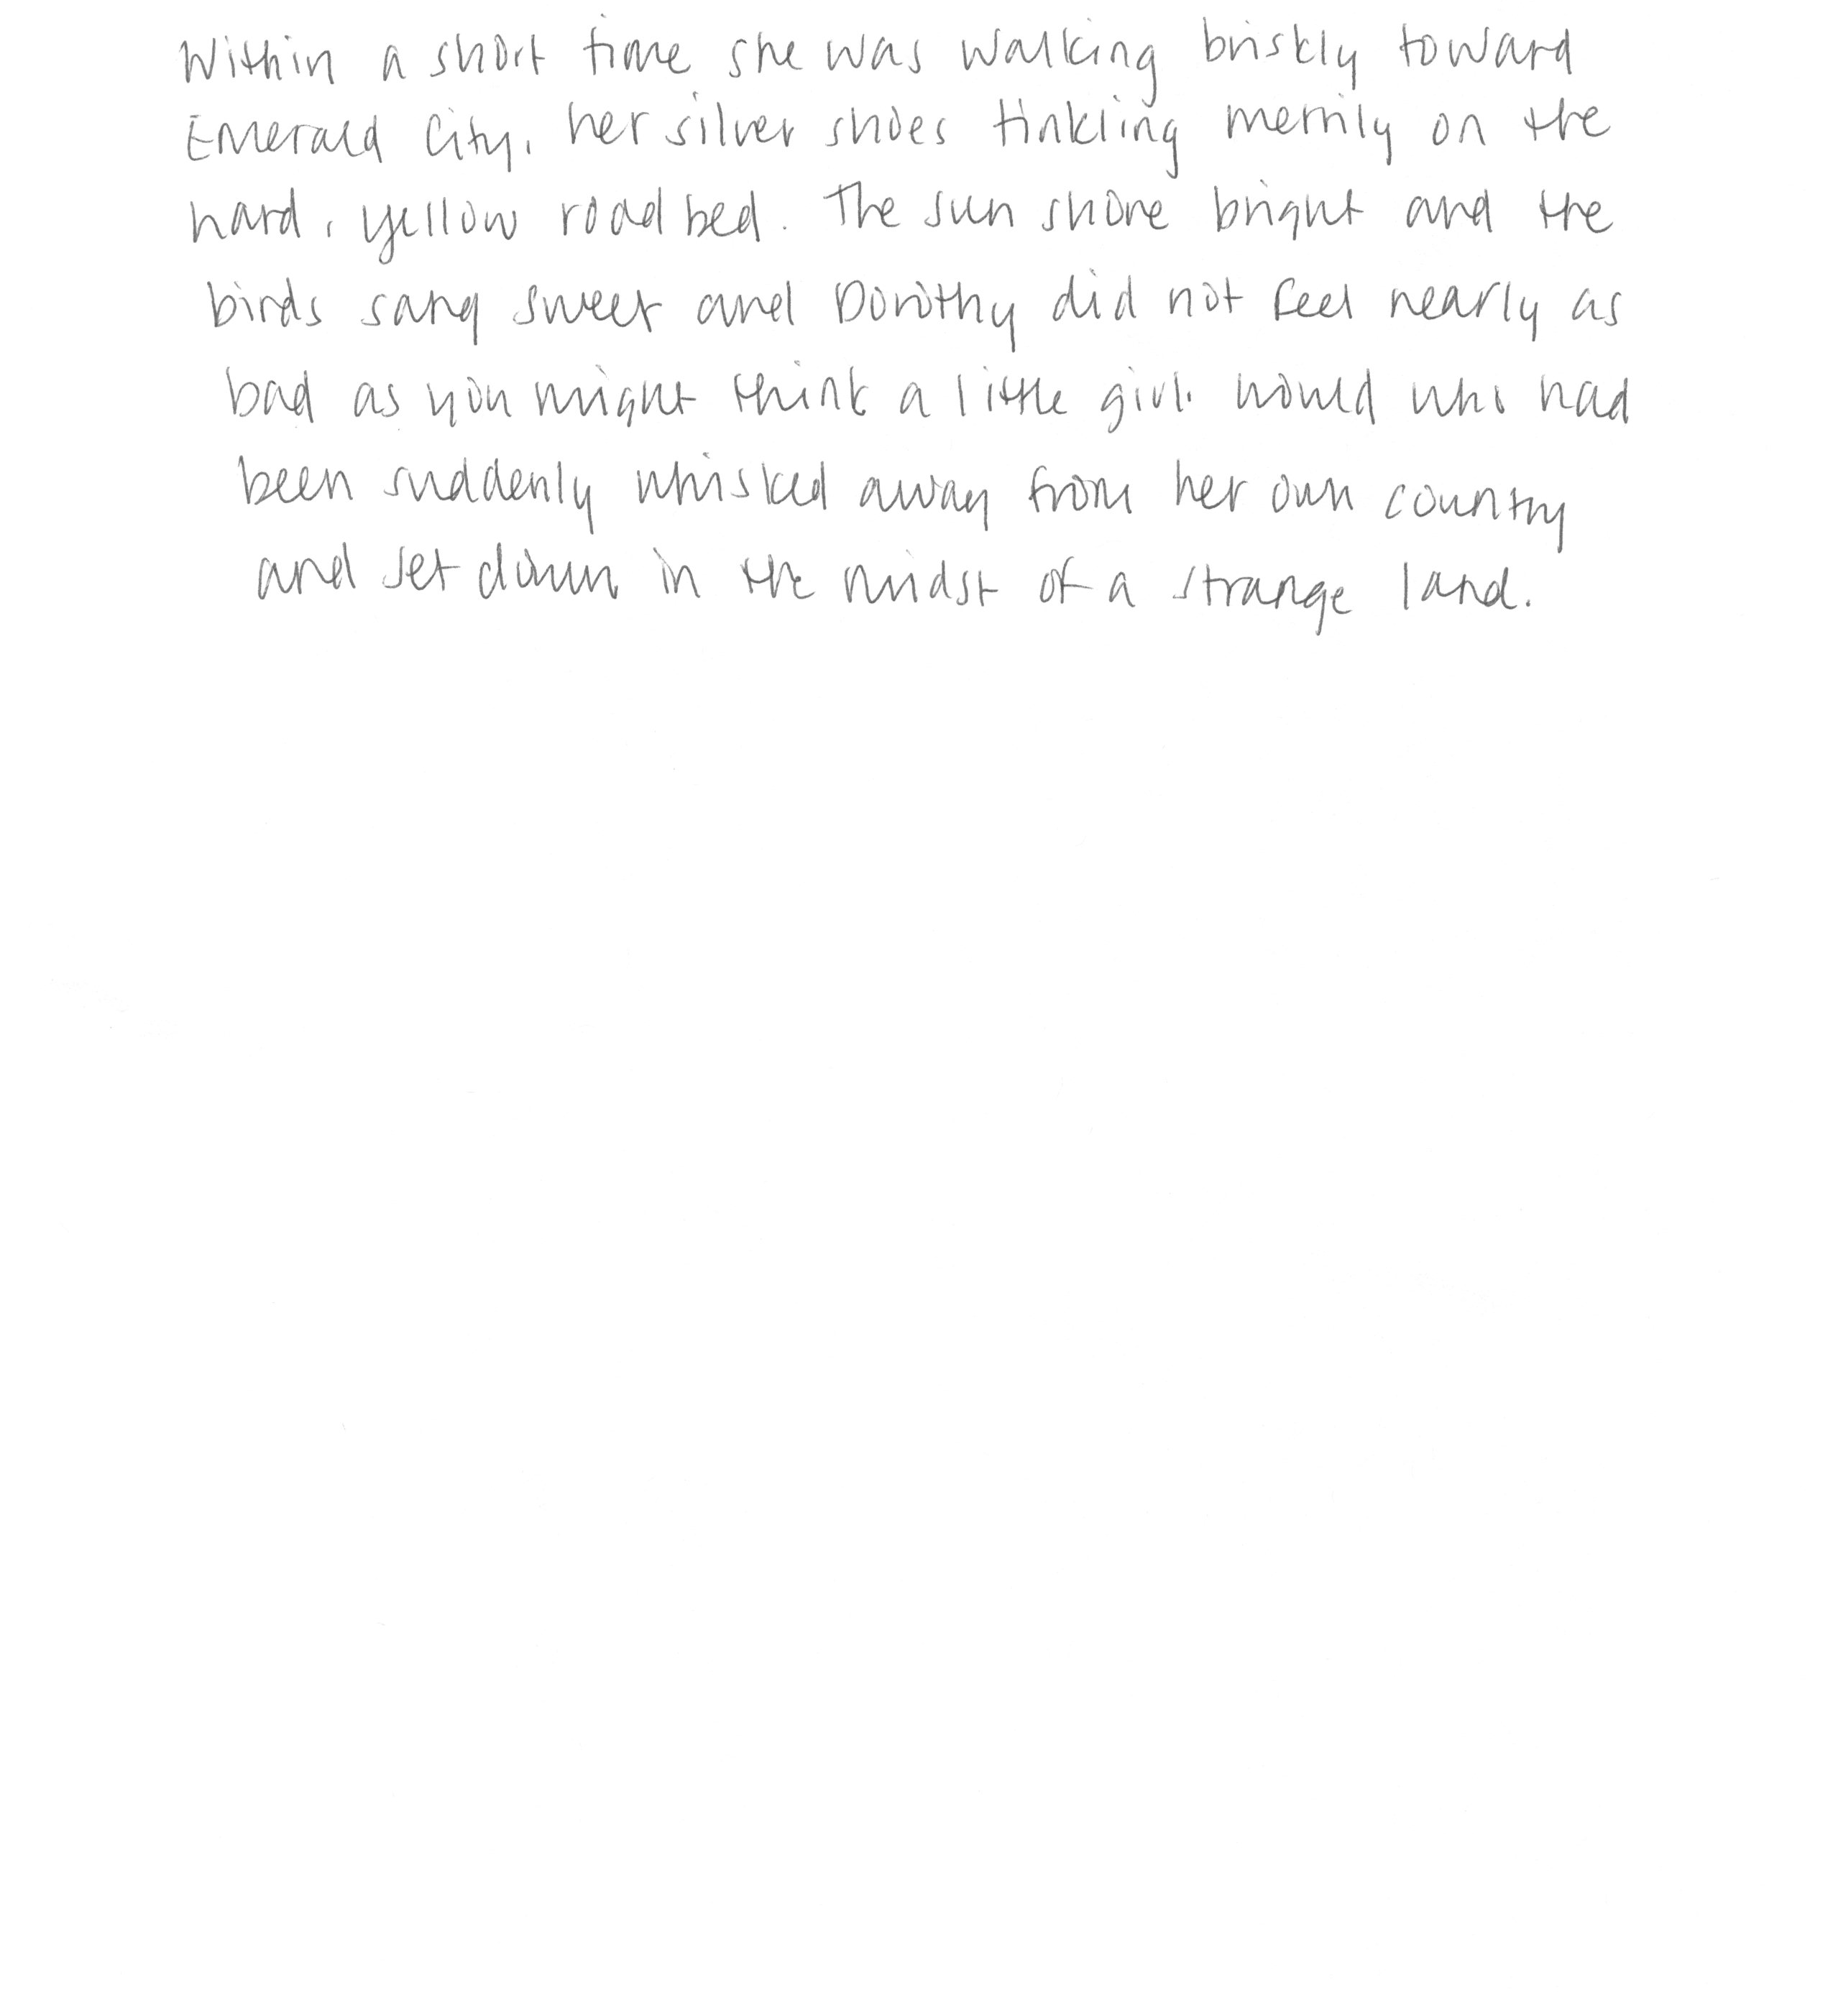 Within a short time she was walking briskly toward
Emerald City, her silver shoes tinkling merrily on the
hard, yellow roadbed. The sun shone bright and the
birds sang sweet and Dorothy did not feel nearly as
bad as you might think a little girl would who had
been suddenly whisked away from her own country
and set down in the midst of a strange land.